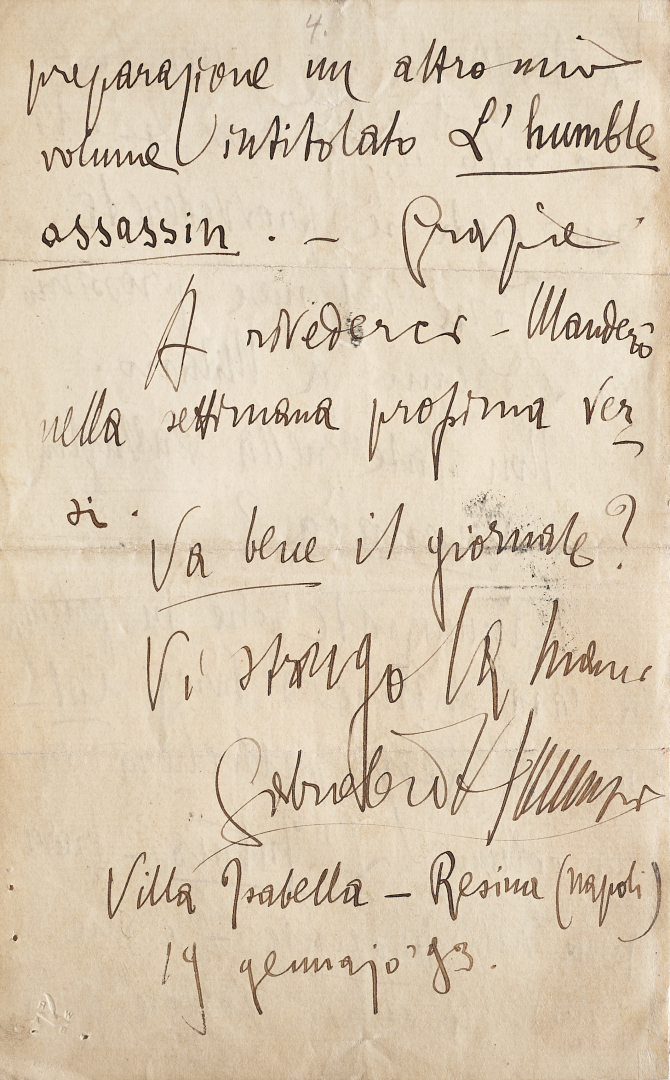 4.
preparazione un altro mio
volume intitolato L'humble
assassin. – Grazie
A rivederci – Manderò
nella settimana prossima ver
si.
Va bene il giornale?
Vi stringo la mano
Gabriele d'Annunzio
Villa Isabella – Resina (Napoli)
19 gennajo '93.